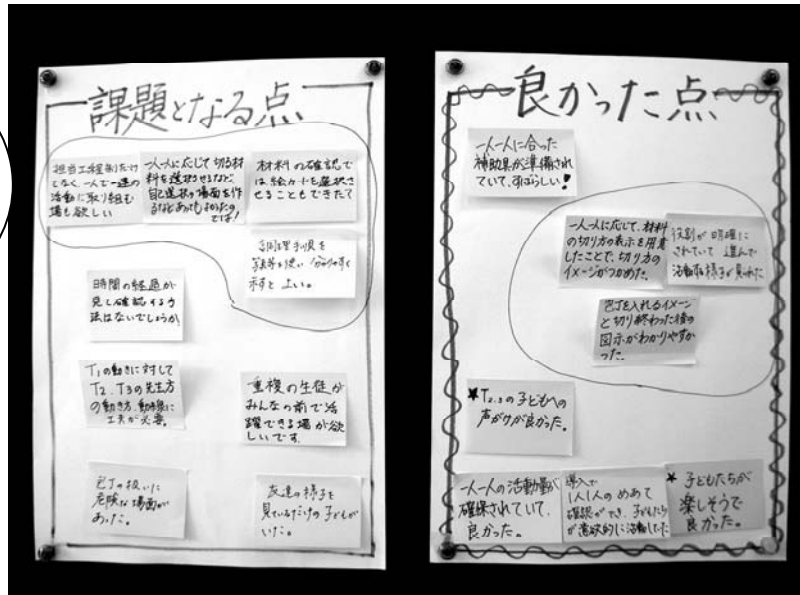 課題となる点
担当工程制だけで
なく、一人で一連の
活動に取り組む
場も欲しい
一人一人に応じて切る材
料を選択させるなど、
自己選択の場面を作
るなどあってもよかったの
では!
材料の確認で
は絵カードを選択さ
せることもできたて
調理手順を
写真等を使い分かりやすく
示すとよい。
時間の経過が
見し確認する方
法はないでしょうか
T1の動きに対して
T2、T3の先生方
の動き方、動線に
工夫が必要。
重複の生徒が
みんなの前で活
躍できる場が欲
しいです
包丁の扱いに
危険な場面が
あった。
友達の様子を
見ているだけの子どもが
いた。
良かった点
一人一人に合った
補助具が準備され
ていて、すばらしい!
一人一人に応じて、材料
の切り方の表示を用意
したことで、切り方の
イメージがつかめた。
役割が明確に
されていて選んで
活動する様子が見られた
包丁を入れるイメージ
と切り終わった後の
図示がわかりやすか
った。
★T2,3の子どもへの
声がけが良かった。
一人一人の活動量が
確保されていて、
良かった。
導入で
1人1人のめあて
確認ができ、子どもたち
が意欲的に活動してた
★子どもたちが
楽しそうで
良かった。